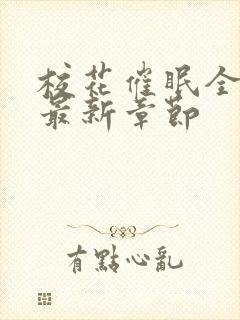 校花催眠全
最新章節
有點心亂